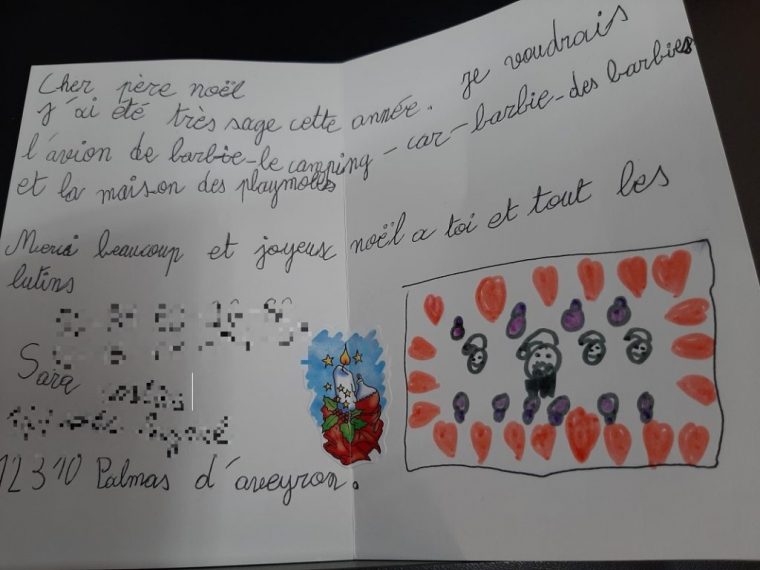 Cher père noël
J'ai été très sage cette année. Je voudrais
l'avion de barbie-le camping-car-barbie-des barbies
et la maison des playmobils
Merci beaucoup et joyeux noël a toi et tout les
lutins
Sara
12310 Palmas d'aveyron.